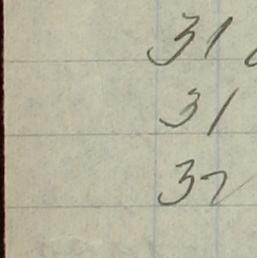 31
31
37